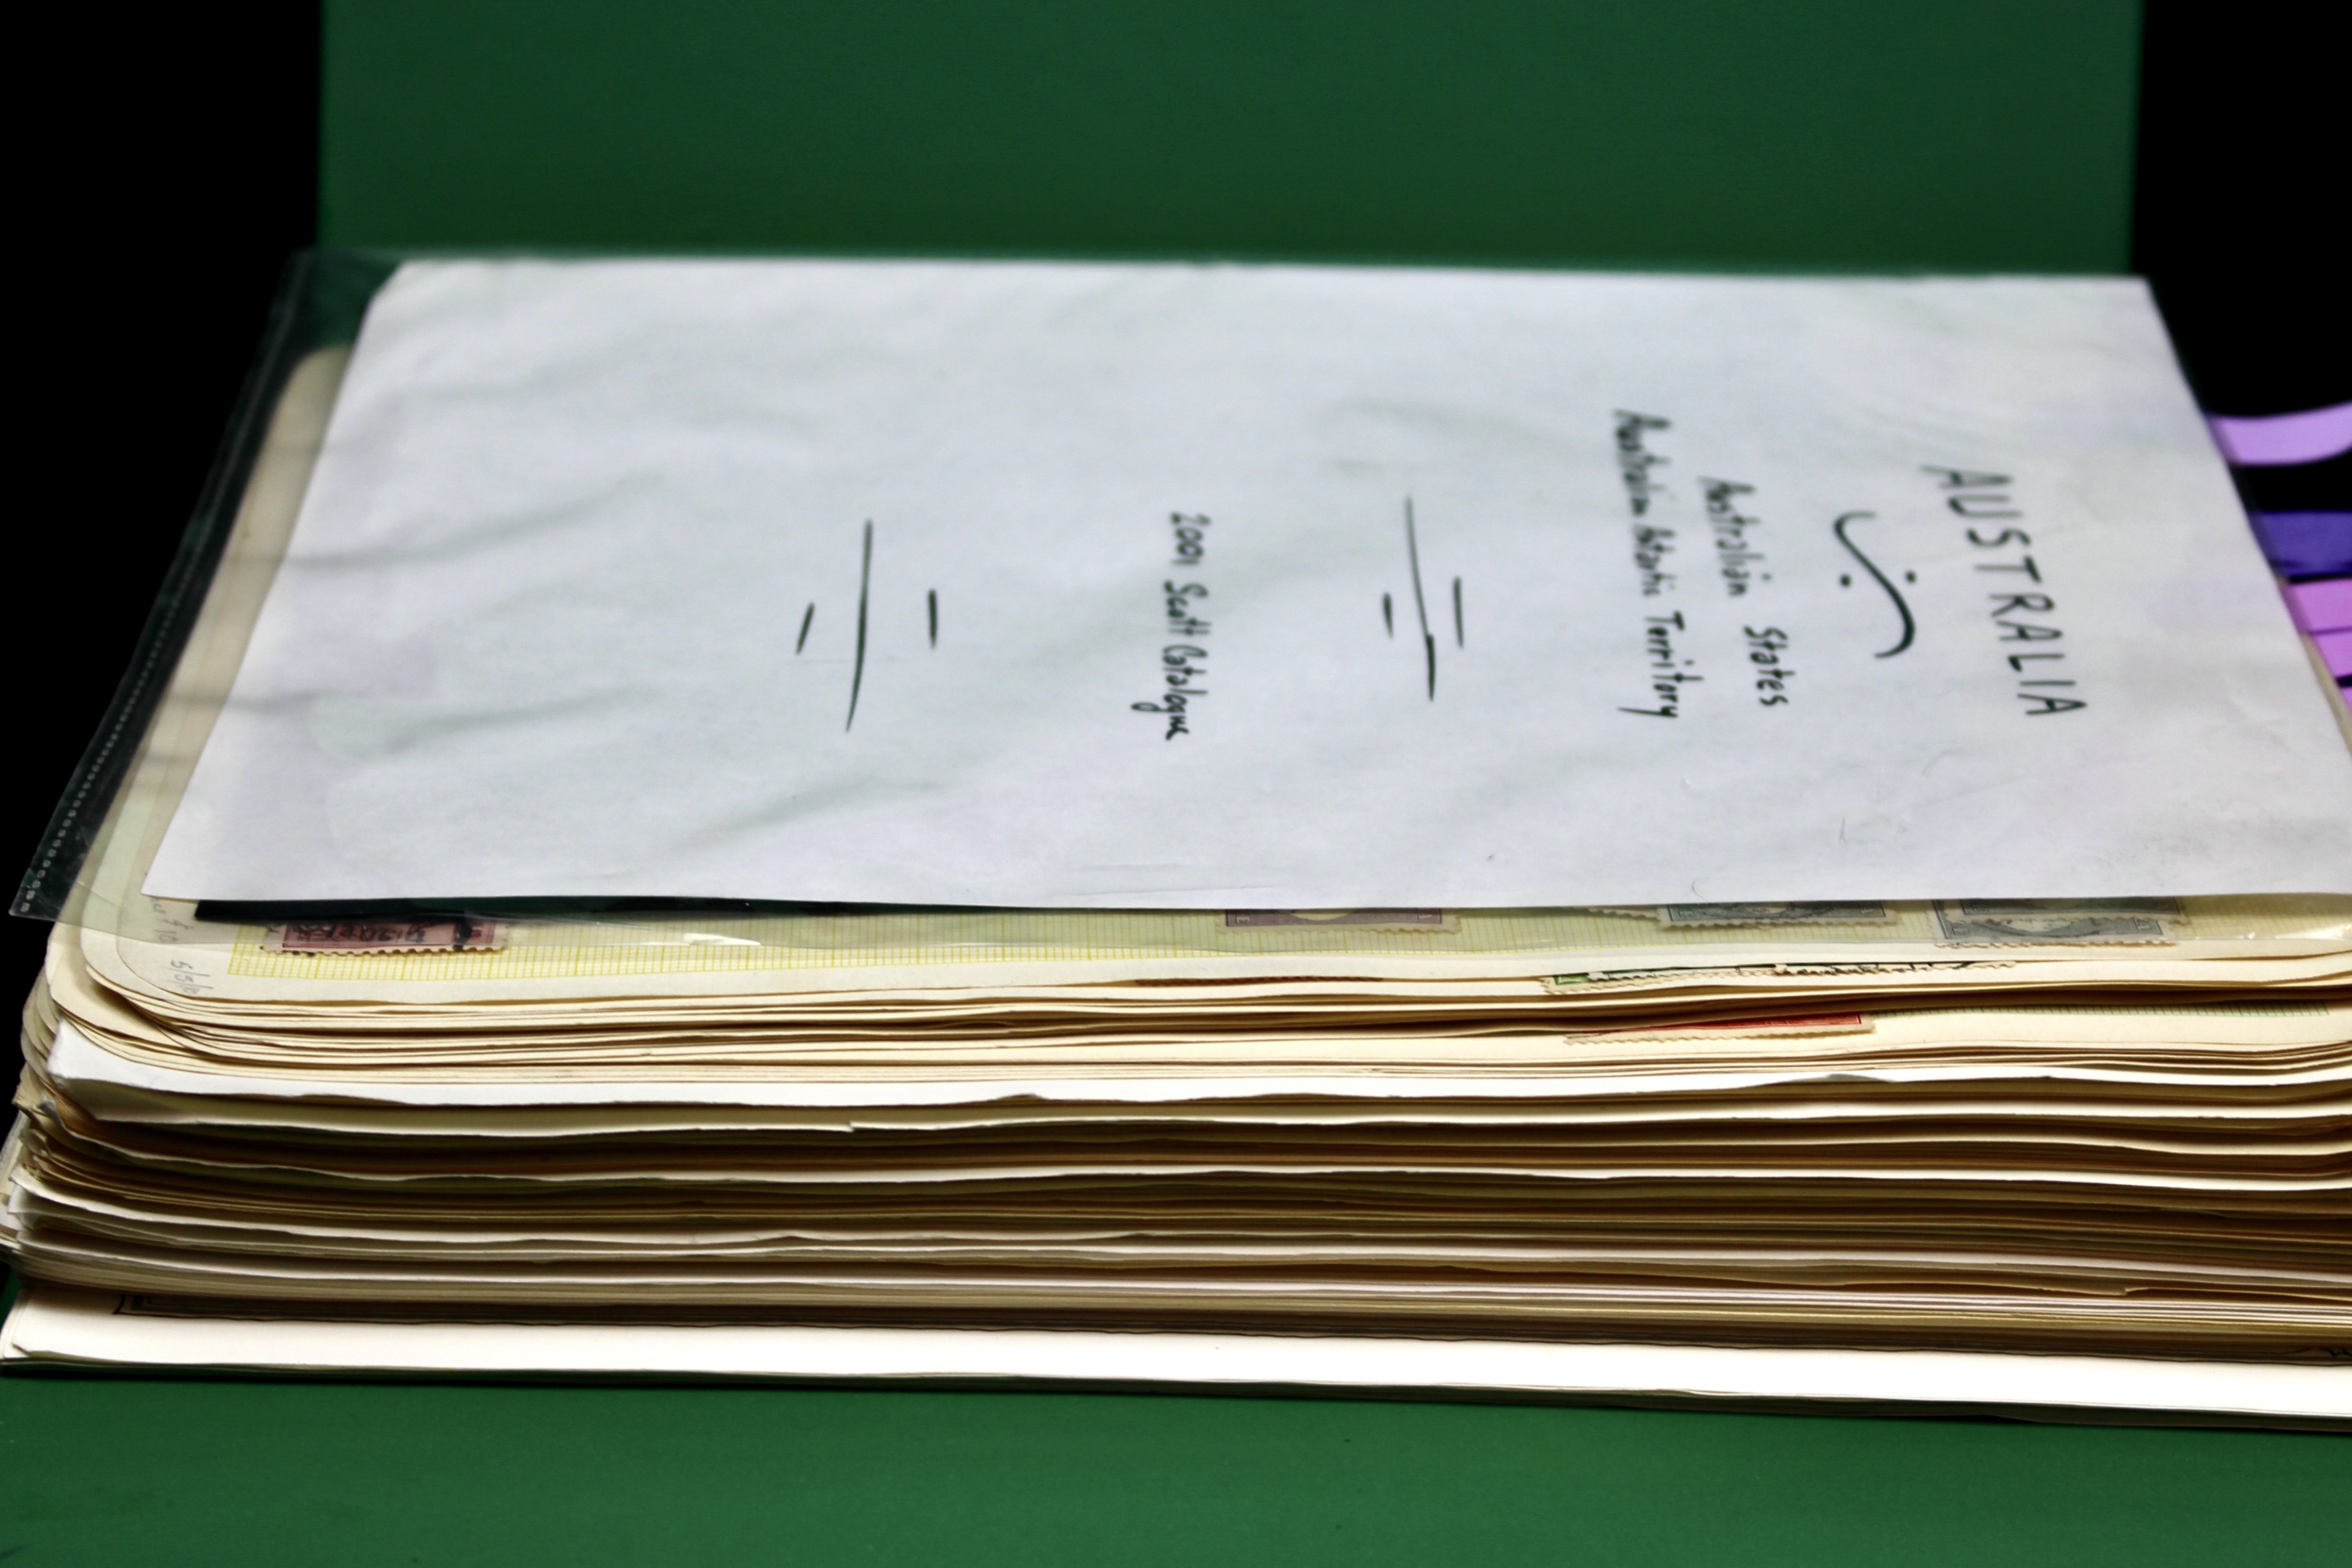 AUSTRALIA
Australian States
Australian Antarctic Territory
2001 Scott Catalogue